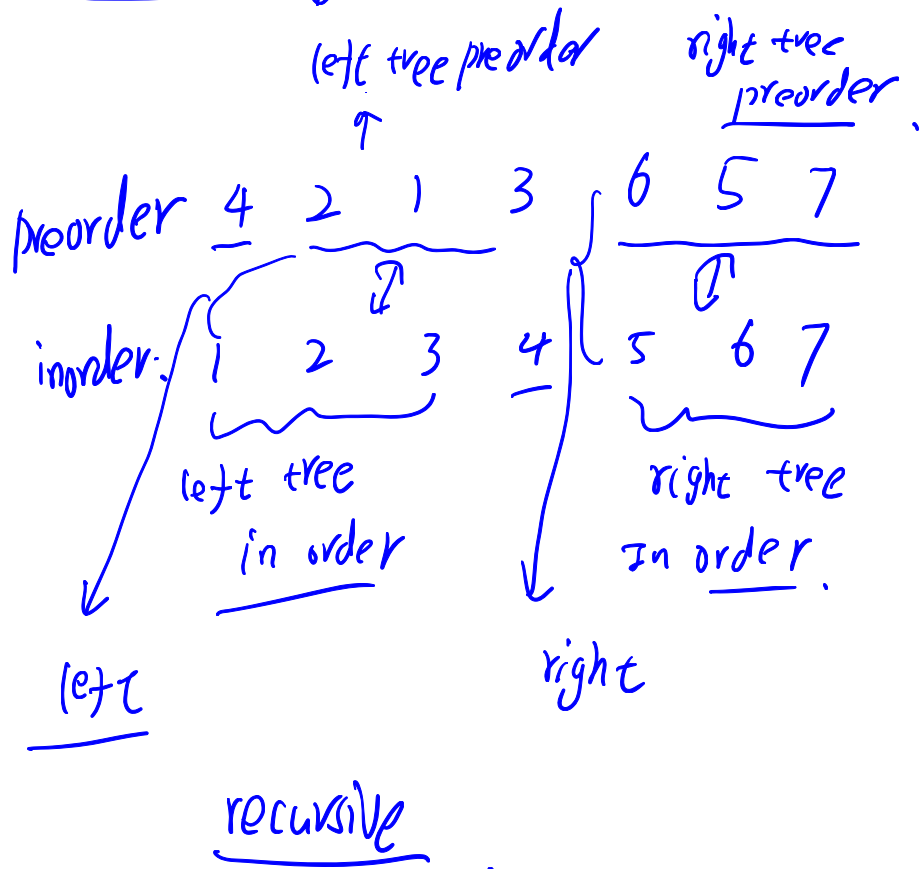 left tree preorder
right tree
preorder.
preorder 4 2 1 3 6 5 7
inorder: 1 2 3 4 5 6 7
left tree
in order
right tree
In order.
left
right
recursive